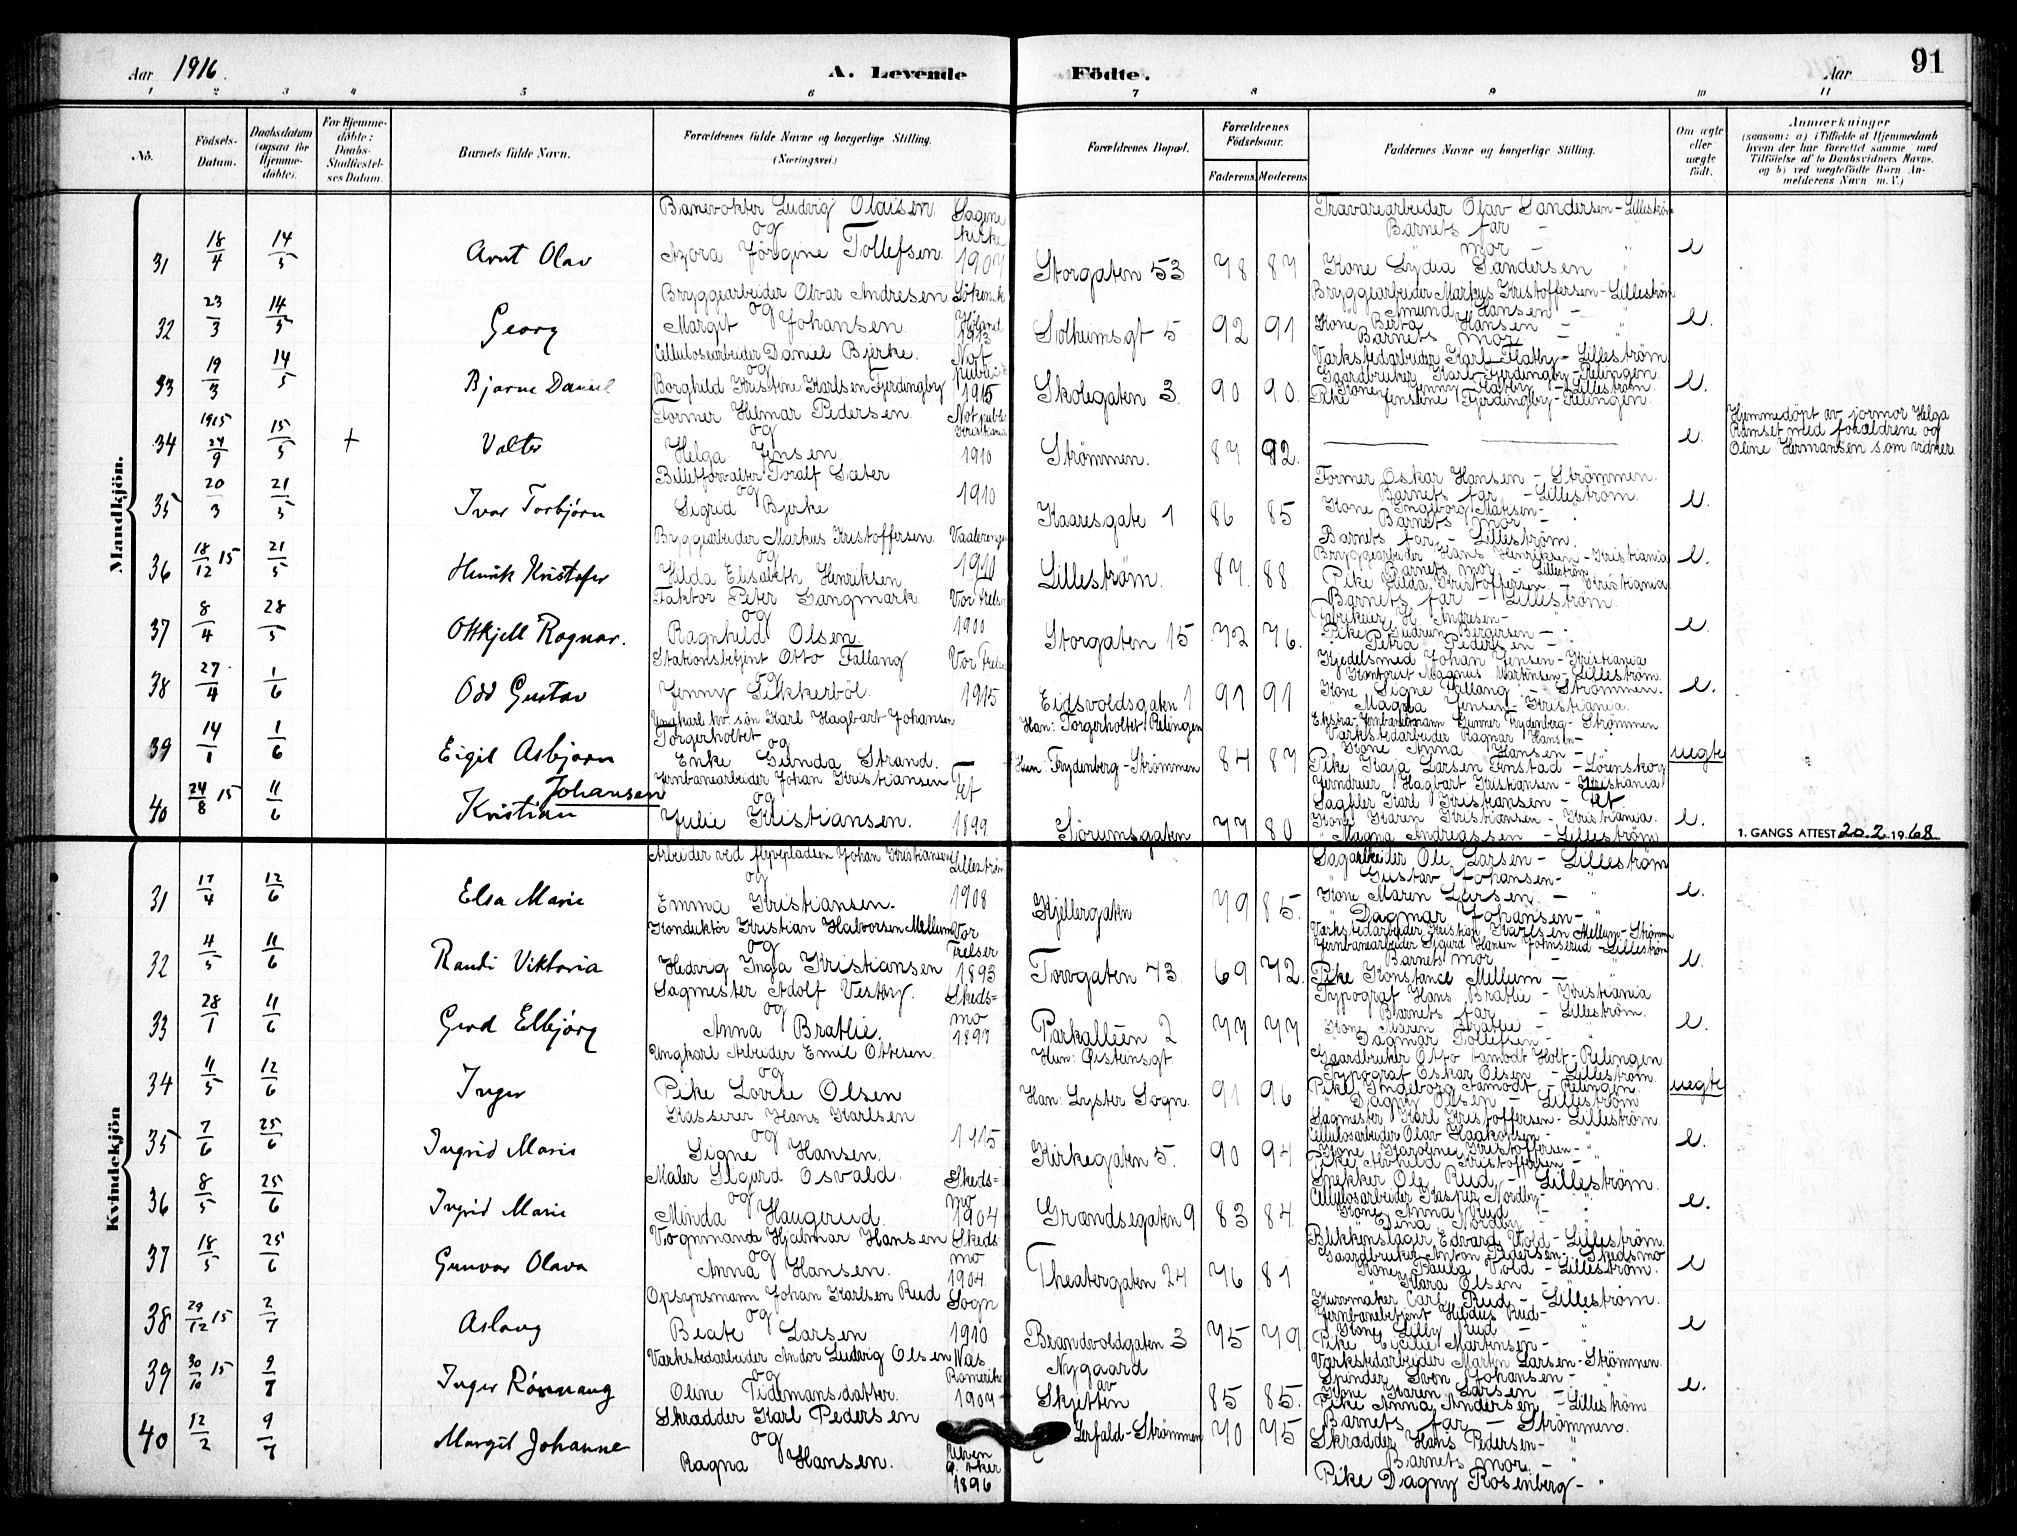 Aar 1916.
A. Levende Födte.
Aar 91
1 2 3 4 5 6 7 8 9 10 11
No.
Födsels-Datum.
Daabsdatum (ogsaa for Hjemme-döbte).
For Hjemme-döbte: Daabs-Stadfæstel-ses Datum.
Barnets fulde Navn.
Forældrenes fulde Navne og borgerlige Stilling. (Næringsvei.)
Forældrenes Bopæl.
Forældrenes Födselsaar.
Faderens. Moderens.
Faddernes Navne og borgerlige Stilling.
Om ægte eller uægte födt.
Anmærkninger
(saasom: a) i Tilfælde af Hjemmedaab hvem der har forrettet samme med Tilföielse af to Daabsvidners Navne, og b) ved uægtefödte Börn An-melderens Navn m. V.)
Mandkjön.
31 18/4 14/5 Arnt Olav
Banevokter Ludvig Olaisen og Azora Jörgine Tollefsen Sagene kirke 1907
Storgaten 53 78 87
Travarearbeider Olav Sandersen - Lilleström
Barnets far -
" mor - "
Kone Lydia Sandersen "
e
32 23/3 14/5 Georg
Bryggearbeider Olvar Andresen og Margit Johansen Höland 1913
Solheimsgt 5 92 91
Bryggearbeider Markus Kristoffersen - Lilleström
Amund Hansen - "
Kone Berta Hansen - "
Barnets mor - "
e.
33 19/3 14/5 Bjarne Daniel
Cellulosearbeider Daniel Bjerke og Borghild Kristine Karlsen Fjerdingby Not. public 1915
Skolegaten 3. 90 90.
Værkstedarbeider Karl Flatby - Lilleström
Gaardbruker Karl Fjerdingby - Rælingen.
Kone Jenny Flatby - Lilleström.
Pike Jensine Fjerdingby - Rælingen.
e.
34 1915 24/9 15/5 + Valter
Former Hilmar Pedersen og Helga Jensen Not. publ. Kristiania 1910
Strømmen. 87 92.
e.
Hjemmedöpt av jormor Helga Ramset med forældrene og Oline Hermansen som vidner
35 20/3 21/5 Ivar Torbjørn
Billetforvalter Toralf Sæter og Sigrid Bjerke 1910
Kaaresgate 1 86 85
Former Oskar Hansen - Strömmen.
Barnets far - Lilleström.
Kone Ingeborg Madsen - "
Barnets mor - "
e.
36 18/12 15 21/5 Henrik Kristofer
Bryggearbeider Markus Kristoffersen og Hilda Elisabeth Henriksen Vaalerengen 1910
Lilleström. 87. 88.
Barnets far - Lilleström.
Bryggearbeider Hans Henriksen - Kristiania
Barnets mor - Lilleström
Pike Hilda Kristoffersen - Kristiania
e.
37 8/4 28/5 Ottkjell Ragnar.
Faktor Peter Langmark og Ragnhild Olsen. Vor Frelser 1900
Storgaten 15 72 76.
Barnets far - Lilleström.
Fabrikeier H. Andresen -
Pike Gudrun Bergersen - "
" Petra Pedersen -
e.
38 27/4 1/6 Odd Gustav
Stationsbetjent Otto Fallang og Jenny Sikkerböl. Vor Frelser 1915
Eidsvoldsgaten 1 91 91
Kjedelsmed Johan Jensen - Kristiania
Kontorist Magnus Martinsen - Lilleström.
Kone Signe Fallang - Strömmen.
" Magna Jensen - Kristiania.
e.
39 14/1 1/6 Eigil Asbjørn
Ungkarl hv. sön Karl Hagbart Johansen Torgerholtet og Enke Gunda Strand.
Han: Torgerholtet Rælingen
Hun: Frydenberg - Strömmen 84 87
Ekstra-Jernbanemann Gunner Frydenberg - Strömmen
Værkstedarbeider Ragnar Hansen -
Kone Anna Hansen - "
Pike Kaja Larsen Finstad - Lörenskog
uegte
40 24/8 15 11/6 Kristian Johansen
Jernbanearbeider Johan Kristiansen og Julie Kristiansen. Fet 1899
Sörumsgaten 77 80
Jerndreier Hagbart Kristiansen - Kristiania
Sagfiler Karl Kristiansen - Fet.
Kone Karen Kristiansen - Kristiania.
" Magna Andreassen - Lilleström
e.
1. GANGS ATTEST 20.2.1968
Kvindekjön
31 17/4 12/6 Elsa Marie
Arbeider ved flyvepladsen Johan Kristiansen og Emma Kristiansen. Lilleström 1908
Kjellergaten 79 85.
Sagarbeider Ole Larsen - Lilleström
" Gustav Johansen - "
Kone Maren Larsen - "
" Dagmar Johansen - "
e.
32 4/5 11/6 Randi Viktoria
Konduktör Kristian Halvorsen Mellum og Hedvig Inga Kristiansen Vor Frelser 1893
Torvgaten 73. 69 72.
Værkstedarbeider Kristian Karlsen Mellum - Strömmen
Jernbanearbeider Sigurd Hansen Johnsrud - Lilleström
Barnets mor - "
Pike Konstance Mellum - "
e.
33 28/1 11/6 Gerd Elbjörg
Sagmester Adolf Vestby. og Anna Bratlie. Skeds=mo 1899
Parkalléen 2 77 77
Typograf Hans Bratlie - Kristiania
Barnets far - Lilleström.
Kone Maren Bratlie - "
" Dagmar Tollefsen - "
e.
34 11/5 12/6 Inger
Ungkarl Arbeider Emil Ottesen. og Pike Lovise Olsen
Hun: Øisteinsgt.
Han: Lyster Sogn. 91 96
Gaardbruker Otto Tamodt Holt - Rælingen
Typograf Oskar Olsen - Lilleström.
Pike Ingeborg Aamodt - Rælingen.
" Dagny Olsen - Lilleström
uegte
35 7/6 25/6 Ingrid Marie
Kasserer Hans Karlsen og Signe Hansen. 1915
Kirkegaten 5. 90 94
Sagmester Karl Kristoffersen - Lilleström.
Cellulosearbeider Olav Haakonsen - "
Kone Karoline Kristoffersen - "
Pike Arnhild Kristoffersen - "
e.
36 8/5 25/6 Ingrid Marie
Maler Sigurd Osvald. og Minda Haugerud. Skeds=mo 1904
Grændsegaten 9 83 84.
Snekker Ole Rud - Lilleström.
Cellulosearbeider Kasper Nordby - "
Kone Anna Rud - "
" Dina Nordby - "
e.
37 18/5 25/6 Gunvor Olava
Vognmand Hjalmar Hansen og Anna Hansen. Skeds-mo 1904.
Theatergaten 24 76 81
Blikkenslager Edvard Vold - Lilleström.
Gaardbruker Anton Pedersen - Skedsmo
Kone Paula Vold - Lilleström.
" Klara Olsen - "
e
38 29/12 15 2/7 Aslaug
Opsynsmann Johan Karlsen Rud og Beate Larsen Sogn 1910
Brandvoldgaten 3 75 79
Kurvmaker Carl Rud - Lilleström.
Jernbanebetjent Hildus Rud -
Kone Lilly Rud - "
Pike Cicilie Martinsen - "
e
39 30/10 15 9/7 Inger Rósnaug
Værkstedarbeider Andor Ludvig Olsen og Oline Tidemansdatter. Næs Romerike 1907
Nygaard av Skjetten 85 85.
Værkstedarbeider Martin Larsen - Strömmen.
Spinder Sven Johansen - "
Kone Karen Larsen - "
Pike Anna Andersen - Lilleström
e.
40 12/2 9/7 Margit Johanne
Skrædder Karl Pedersen og Ragna Hansen. Ulven Ø. Aker 1896
Gerfald - Strömmen 70 75
Barnets far - Strömmen.
Skrædder Hans Pedersen - "
Barnets mor. - "
Pike Dagny Rosenberg - "